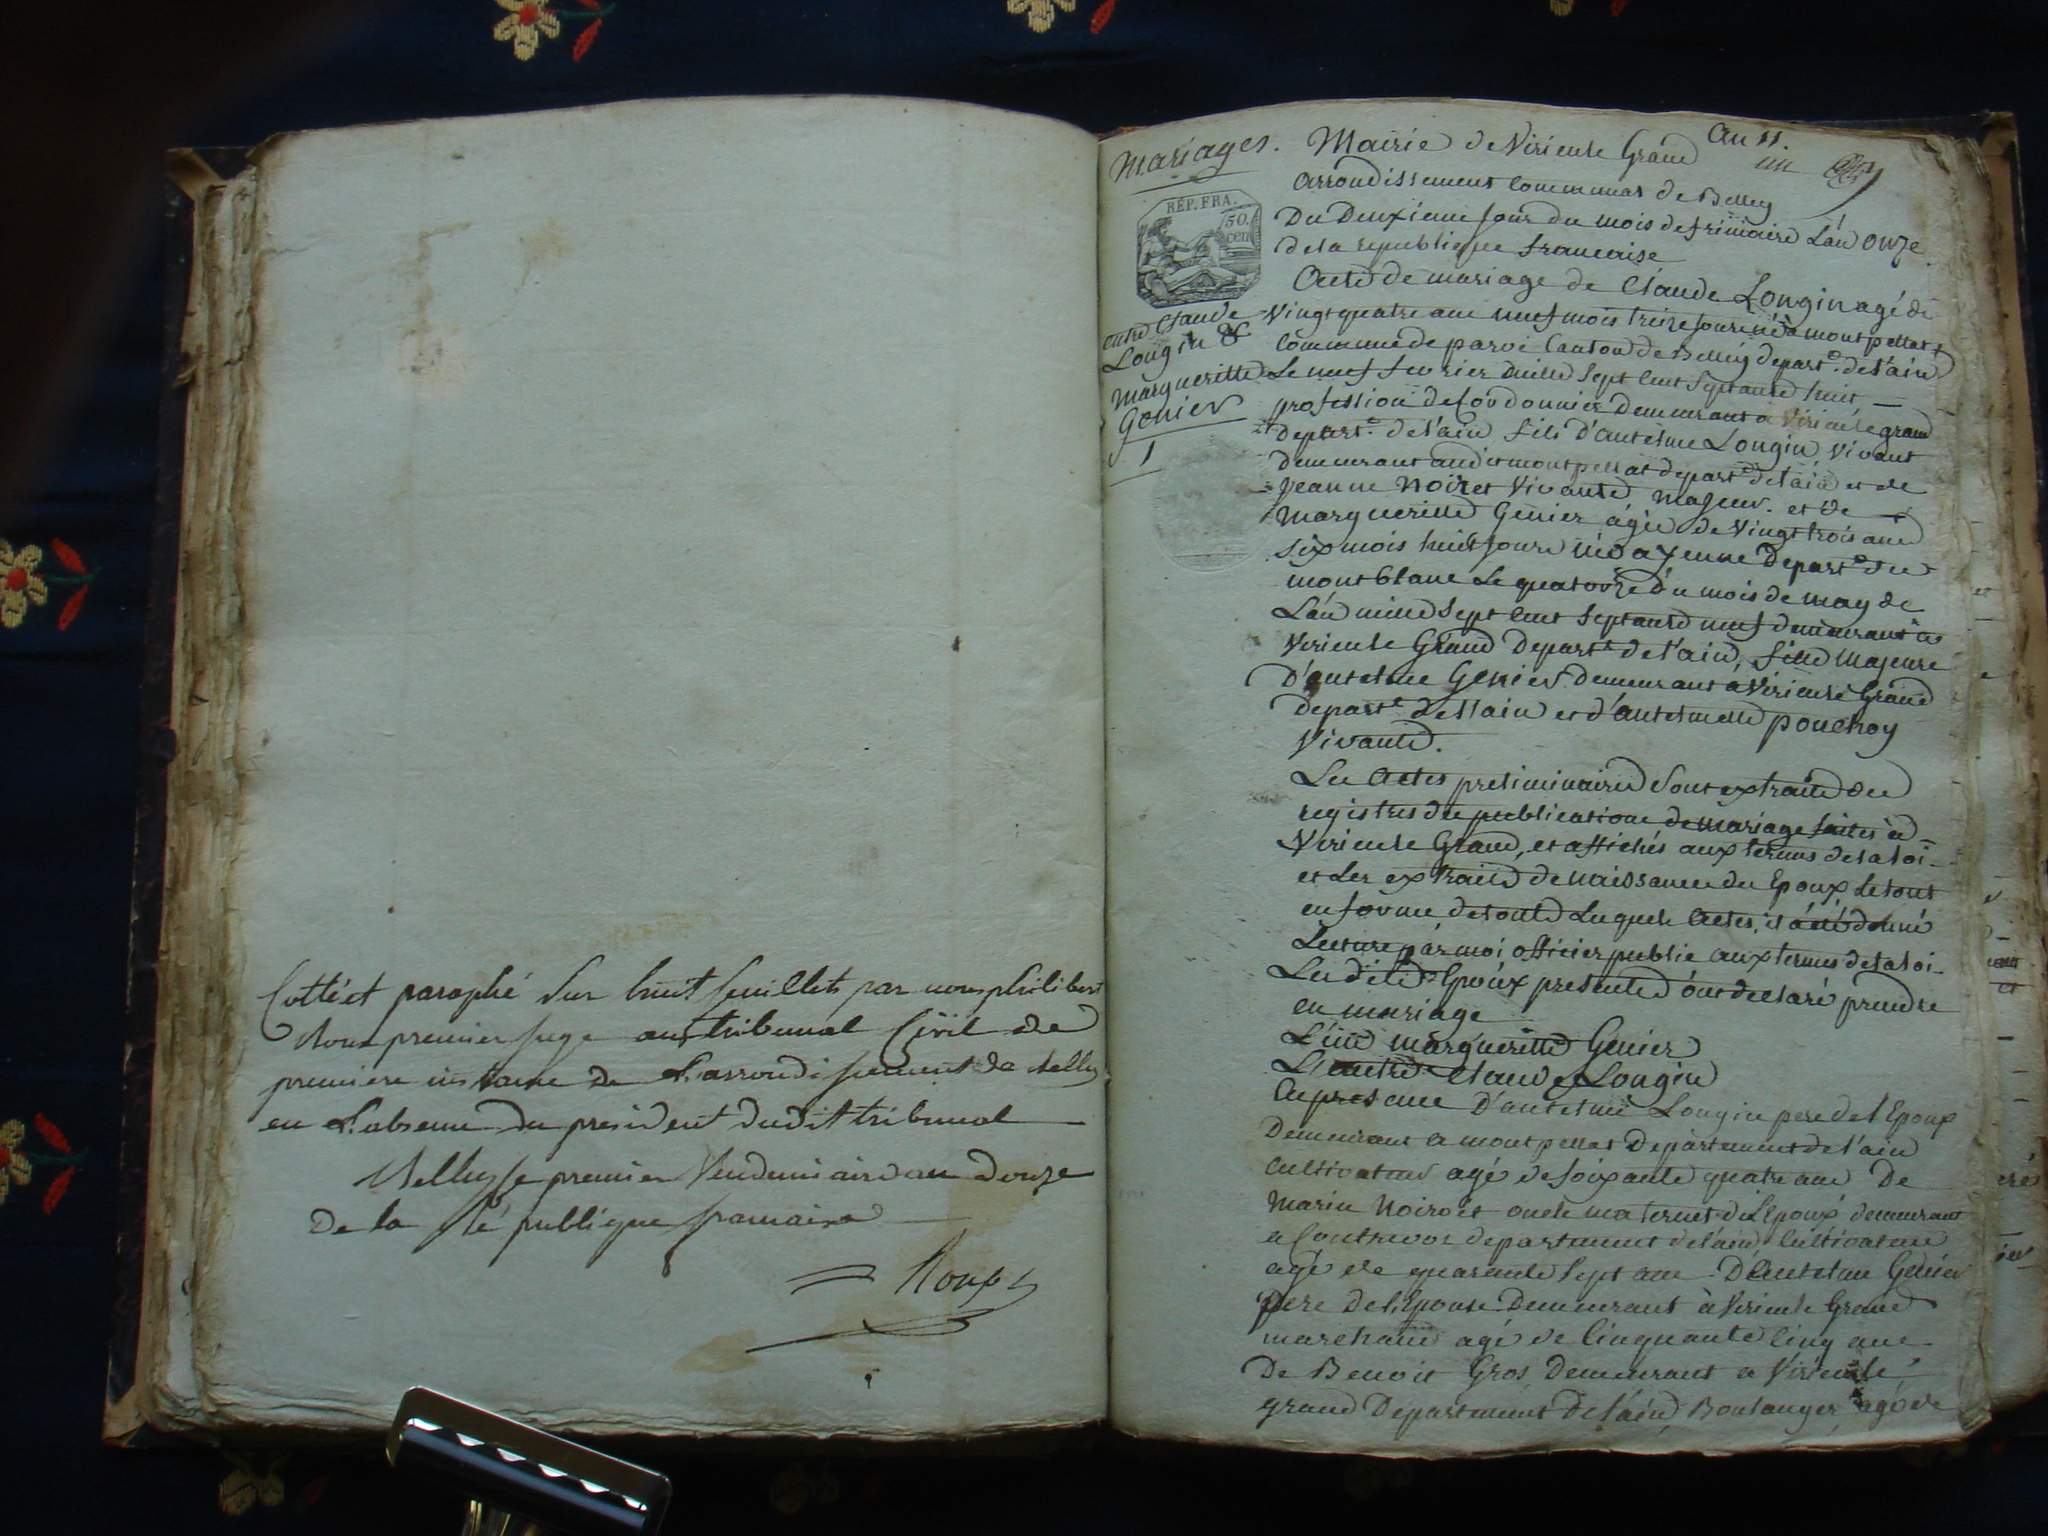 Cotté et paraphé sur huit feuillets par nous philibert
Roux premier juge au tribunal Civil de
premiere instance de L'arrondissement de Belley
en L'absence du president dudit tribunal
Belley le premier Vendemiaire an douze
De la République francaise
Roux
Mariages.
RÉP. FRA.
50.
cen
entre Claude
Longin &
Margueritte
Genier
1
Mairie de Virieu le Grand an 11.
un
Arrondissement Communal de Belley
Du Deuxieme jour du mois de frimaire L'an onze
de la republique francaise
Acte de mariage de Claude Longin agé de
Vingt quatre ans neuf mois treize jours né à montpellat
Commune de parve Canton de Belley depart.t de l'ain
Le neuf fevrier mille sept cent septante huit
profession de Cordonnier demeurant a Virieu le grand
depart.t de l'ain fils D'antelme Longin vivant
demeurant audit montpellat depart.t de l'ain et de
Jeanne Noiret Vivante majeur. et de
Margueritte Genier agée de vingt trois ans
six mois huit jours née a yenne depart.t du
mont blanc Le quatorze du mois de may de
L'an mille sept cent septante neuf demeurant a
Virieu le Grand depart.t de l'ain, fille majeure
D'antelme Genier demeurant a Virieu le Grand
depart.t de l'ain et d'antelmette pouchoy
Vivante.
Les actes preliminaires sont extraits des
registres des publications de mariage faites a
Virieu le Grand, et affichés aux termes de la loi
et les extraits de naissance des Epoux le tout
en forme de toute lesquels actes, il a été donné
Lecture par moi officier public aux termes de la loi.
Les dits Epoux presents ont declaré prendre
en mariage
L'une margueritte Genier
L'autre Claude Longin
En presence D'antelme Longin pere de l'Epoux
Demeurant a montpellat Departement de l'ain
Cultivateur agé de soixante quatre ans De
Marin Noiroet oncle maternel de L'Epoux demeurant
a Contrevoz departement de l'ain Cultivateur
agé de quarante sept ans. D'Antelme Genier
pere de l'Epouse Demeurant à Virieu le Grand
marchand agé de Cinquante Cinq ans
De Benoit Gros Demeurant a Virieu le
grand Departement de l'ain, Boulanger agé de